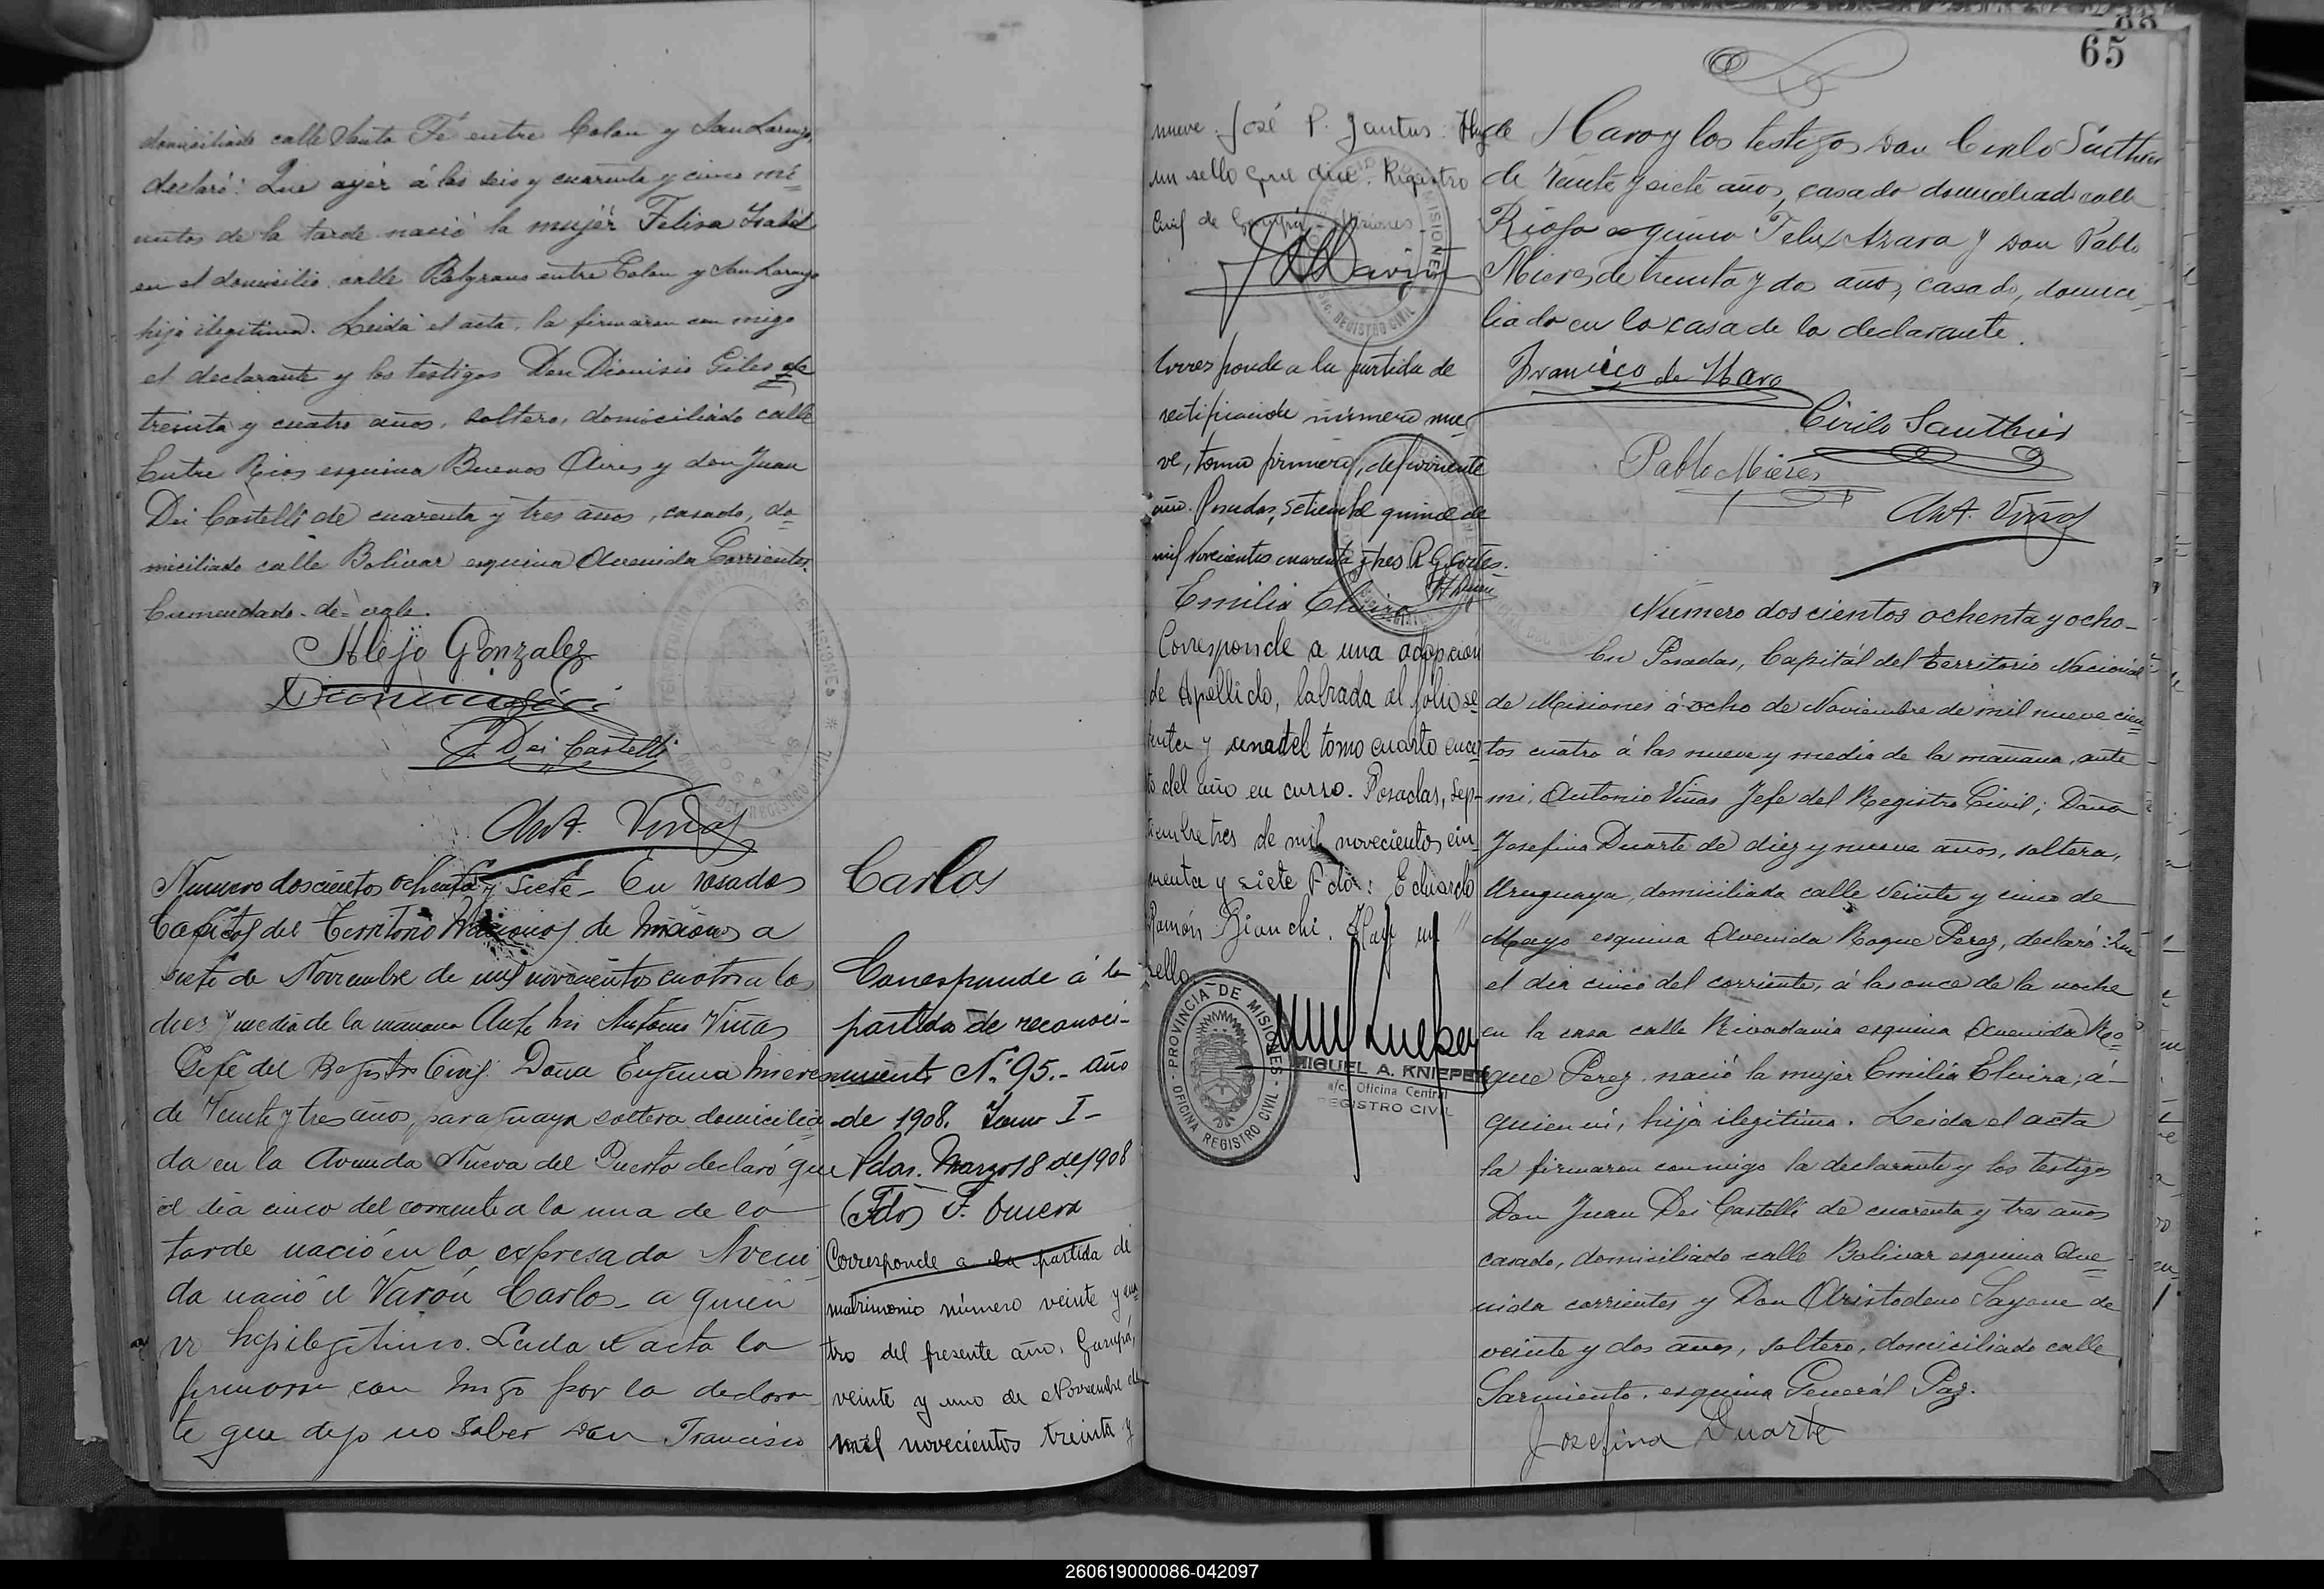 domiciliado calle Santa Fé entre Colon y San Lorenzo,
declaró: Que ayer á las seis y cuarenta y cinco mi-
nutos de la tarde nació la mujer Felisa Isabel
en el domicilio calle Belgrano entre Colon y San Lorenzo
hija ilegitima. Leida el acta, la firmaron con migo
el declarante y los testigos Don Dionisio Giles de
treinta y cuatro años, soltero, domiciliado calle
Entre Rios esquina Buenos Aires y don Juan
Dei Castelli de cuarenta y tres años, casado, do-
miciliado calle Bolivar esquina Avenida Corrientes.
Enmendado-de=vale.
Alejo Gonzalez
J Dei Castelli
Ant. Viñas
Numero doscientos ochenta y siete- En Posadas
Capital del Territorio Nacional de Misiones a
siete de Noviembre de mil novecientos cuatro a las
diez y media de la mañana Ante mi Antonio Viñas
Gefe del Registro Civil Doña Eugenia Mieres
de Veinte y tres años, paraguaya soltera domicilia-
da en la Avenida Nueva del Puerto declaró que
el dia cinco del corriente a la una de la
tarde nació en la expresada Aveni-
da nació el Varón Carlos- a quien
vi hijo ilegitimo. Leida el acta la
firmaron con migo por la declaran-
te que dijo no saber Don Francisco
Carlos
Corresponde á la
partida de reconoci-
miento Nº 95.- año
de 1908. Tomo I-
Pdas. Marzo 18 de 1908
(Fdo)
Corresponde a la partida de
matrimonio número veinte y cua-
tro del presente año. Garupá,
veinte y uno de Noviembre de
mil novecientos treinta y
88
65
nueve. José P. Jantus: Hay
un sello que dice. Registro
Civil de Garupá Misiones
Corresponde a la partida de
rectificacion de número nue-
ve, tomo primero, del corriente
año. Posadas, Setiembre quince de
mil novecientos cuarenta y tres. R. G. Cortes.
Emilia Elvira
Corresponde a una adopción
de Apellido, labrada al folio se-
tenta y una del tomo cuarto
del año en curso. Posadas, Sep-
tiembre tres de mil novecientos cin-
cuenta y siete Fdo: Eduardo
Ramón Bianchi. Hay un
sello
PROVINCIA DE MISIONES
OFICINA REGISTRO CIVIL
MIGUEL A. KNIEPER
a/c. Oficina Central
REGISTRO CIVIL
de Haro y los testigos Don Cirilo Sauthier
de Veinte y siete años, casado domiciliado calle
Rioja esquina Felix Azara y Don Pablo
Mieres de treinta y dos años, casado, domici-
liado en la casa de la declarante.
Francisco de Haro
Cirilo Sauthier
Pablo Mieres
Ant. Viñas
Numero doscientos ochenta y ocho-
En Posadas, Capitál del Territorio Nacional
de Misiones á ocho de Noviembre de mil nuevecien-
tos cuatro á las nueve y media de la mañana, ante
mi, Antonio Viñas Jefe del Registro Civil; Doña
Josefina Duarte de diez y nueve años, soltera,
Uruguaya, domiciliada calle Veinte y cinco de
Mayo esquina Avenida Roque Perez, declaró: Que
el dia cinco del corriente, á las once de la noche
en la casa calle Rivadavia esquina Avenida Ro-
que Perez nació la mujer Emilia Elvira, á-
quien vi, hija ilegitima. Leida el acta
la firmaron con migo la declarante y los testigos
Don Juan Dei Castelli de cuarenta y tres años
casado, domiciliado calle Bolivar esquina Ave-
nida corrientes y Don Aristodeno Sayane de
veinte y dos años, soltero, domiciliado calle
Sarmiento, esquina Generál Paz.
Josefina Duarte
260619000086-042097